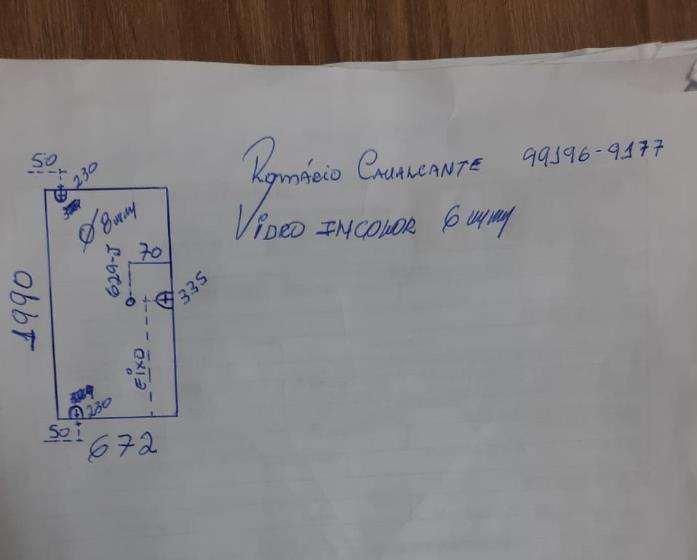 Romário Cavalcante 99196-9177
Vidro incolor 6mm
50
230
Ø 8mm
70
629-J
335
1990
Eixo
230
50
672